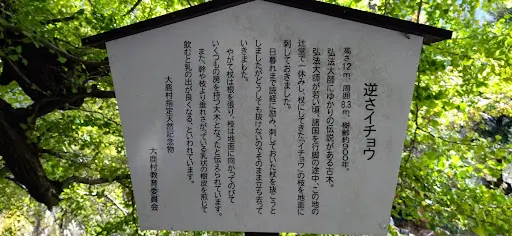 逆さイチョウ
高さ12m、周囲8.3m、樹齢約900年。
弘法大師にゆかりの伝説がある古木。
弘法大師が若い頃、諸国を行脚の途中、この地の
辻堂で一休みし、杖にしてきた「イチョウ」の枝を地面に
刺しておきました。
日暮れまで読経に励み、刺しておいた杖を抜こうと
しましたがどうしても抜けないのでそのまま立ち去って
いきました。
やがて杖は根を張り、枝は地面に向かってのびて
いくつもの房を持つ大木となったと伝えられています。
また、幹や枝より垂れさがっている乳状の樹皮を煎じて
飲むと乳の出が良くなる、といわれています。
大鹿村指定天然記念物
大鹿村教育委員会